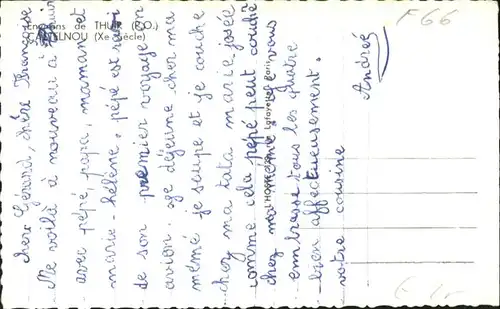 Environs de THUIR (P.O.)
CASTELNOU (Xe siècle)
cher Gérard, chère Françoise
Me voilà à nouveau à
avec pépé, papa, maman et
marie-hélène. pépé est
de son premier voyage en
avion. je déjeune cher ma
mémé je soupe et je couche
cher ma tata marie josée
comme cela pépé peut couché
chez ma mémé. je vous
embrasse tous les quatre
bien affectueusement.
votre cousine
Andrée
Lafayette, Paris
F66